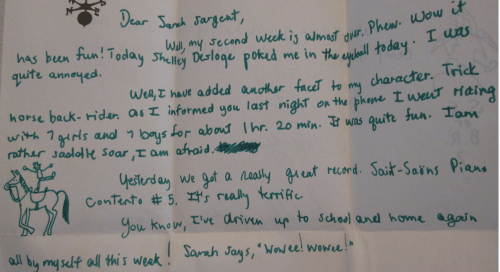 Dear Sarah Sargent,
Well, my second week is almost over. Phew. Wow it
has been fun! Today Shelley Desloge poked me in the eyeball today. I was
quite annoyed.
Well, I have added another facet to my character. Trick
horse back-rider. As I informed you last night on the phone I went riding
with 7 girls and 7 boys for about 1 hr. 20 min. It was quite fun. I am
rather saddle soar, I am afraid.
Yesterday we got a really great record. Sait-Saëns Piano
Contento # 5. It's really terrific
You know, I've driven up to school and home again
all by myself all this week! Sarah says, "Wowee! Wowee!"